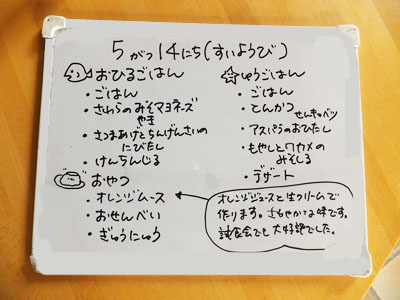 5がつ14にち(すいようび)
おひるごはん
・ごはん
・さわらのみそマヨネーズ
やき
・さつまあげとちんげんさいの
にびたし
・けんちんじる
おやつ
・オレンジムース
・おせんべい
・ぎゅうにゅう
ゆうごはん
・ごはん
・とんかつ
せんキャベツ
・アスパラのおひたし
・もやしとワカメの
みそしる
・デザート
オレンジジュースと生クリームで
作ります。さわやかな味です。
試食会でも大好評でした。